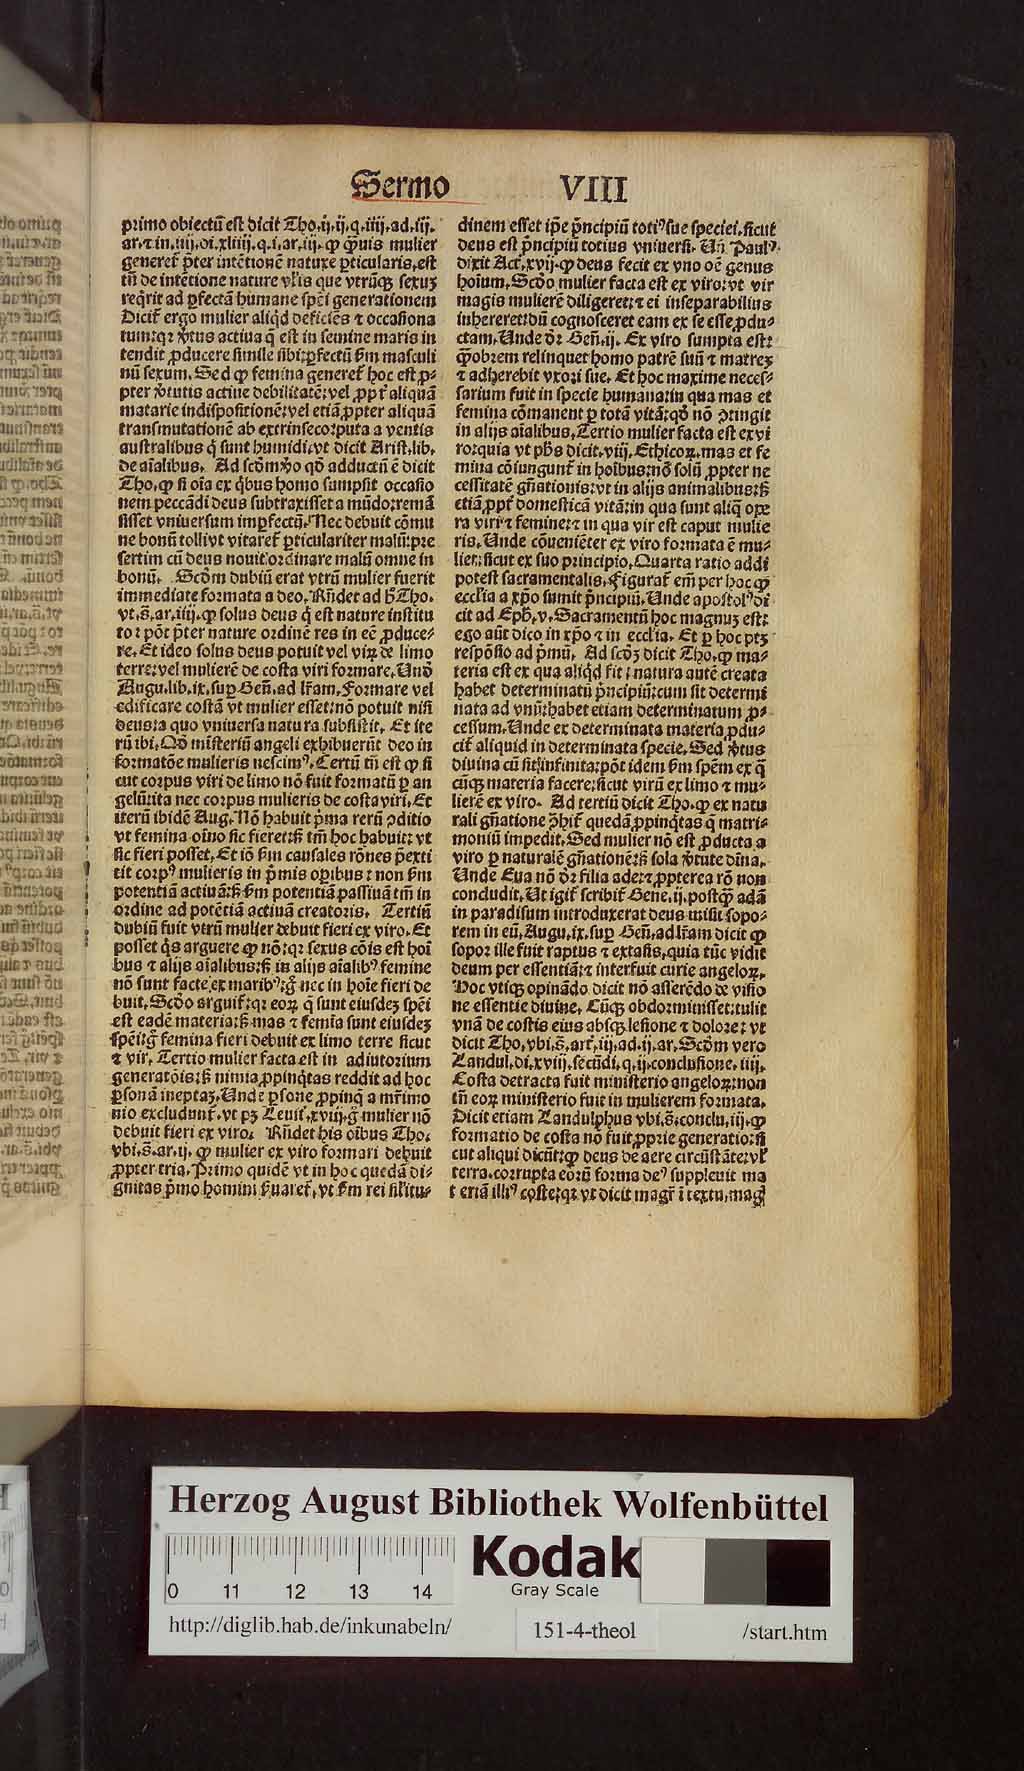 Sermo VIII
primo obiectū est dicit Tho.ij.ij.q.iiij.ad.iij.
ar.⁊ in.iiij.di.xliiij.q.i.ar.iij. ꝙ q̄uis mulier
generet᷑ p̄ter intētionē nature ꝑticularis, est
tn̄ de intētione nature vl̓is que vtrūqꝫ sexuꝫ
reqͥrit ad ꝑfectā humane spēi generationem
Dicit᷑ ergo mulier aliqͥd deficiēs ⁊ occasiona
tum: qꝛ v̓tus actiua q̄ est in semine maris in
tendit ꝓducere simile sibi: ꝑfectū ẜm masculi
nū sexum. Sed ꝙ femina generet᷑ hoc est ꝓ-
pter v̓tutis actiue debilitatē: vel ꝓpt̓ aliquā
matarie indispositionē: vel etiā ꝓpter aliquā
transmutationē ab extrinseco: puta a ventis
australibus qͥ sunt humidi: vt dicit Arist. lib.
de aīalibus. Ad scd̓m v̓o qd̓ adductū ē dicit
Tho. ꝙ si oīa ex qͥbus homo sumpsit occasio
nem peccādi deus subtraxisset a mūdo: remā
sisset vniuersum imꝑfectū. Nec debuit cōmu
ne bonū tolli vt vitaret᷑ ꝑticulariter malū: pre
sertim cū deus nouit ordinare malū omne in
bonū. Scd̓m dubiū erat vtrū mulier fuerit
immediate formata a deo. Rn̄det ad h̓ Tho.
vt.s̄.ar.iiij. ꝙ solus deus qͥ est nature institu
tor pōt p̄ter nature ordinē res in eē ꝓduce-
re. Et ideo solus deus potuit vel viꝝ de limo
terre: vel mulierē de costa viri formare. Un̄
Augu. lib. ix. suꝑ Gen̄. ad lr̄am. Formare vel
edificare costā vt mulier esset: nō potuit nisi
deus: a quo vniuersa natura subsistit. Et ite
rū ibi. Qd̓ misteriū angeli exhibuerūt deo in
formatōe mulieris nescimꝰ. Certū tn̄ est ꝙ si
cut corpus viri de limo nō fuit formatū ꝑ an
gelū: ita nec corpus mulieris de costa viri. Et
iterū ibidē Aug. Nō habuit pͥma rerū ꝯditio
vt femina oīno sic fieret: sꝫ tm̄ hoc habuit: vt
sic fieri posset. Et iō ẜm causales rōnes p̄exti
tit corpꝰ mulieris in pͥmis oꝑibus: non ẜm
potentiā actiuā: sꝫ ẜm potentiā passiuā tm̄ in
ordine ad potētiā actiuā creatoris. Tertiū
dubiū fuit vtrū mulier debuit fieri ex viro. Et
posset qͥs arguere ꝙ nō: qꝛ sexus cōis est hoī
bus ⁊ alijs aīalibus: sꝫ in alijs aīalibꝰ femine
nō sunt facte ex maribꝰ: g̊ nec in hoīe fieri de
buit. Scd̓o arguit᷑: qꝛ eoꝝ q̄ sunt eiusdeꝫ spēi
est eadē materia: sꝫ mas ⁊ femīa sunt eiusdeꝫ
spēi: g̊ femina fieri debuit ex limo terre sicut
⁊ vir. Tertio mulier facta est in adiutorium
generatōis: sꝫ nimia ꝓpinqͥtas reddit ad hoc
ꝑsonā ineptaꝫ. Unde ꝑsone ꝓpinq̄ a mr̄imo
nio excludunt᷑. vt pꝫ Leuit᷑. xviij. g̊ mulier nō
debuit fieri ex viro. Rn̄det his oībus Tho.
vbi.s̄.ar.ij. ꝙ mulier ex viro formari debuit
ꝓpter tria. Primo quidē vt in hoc quedā di-
gnitas pͥmo homini ẜuaret᷑. vt ẜm rei sil̓itu-
dinem esset ip̄e pͥncipiū totiꝰ sue speciei. sicut
deus est pͥncipiū totius vniuersi. Un̄ Paulꝰ.
dixit Act. xvij. ꝙ deus fecit ex vno oē genus
hoīum. Scd̓o mulier facta est ex viro: vt vir
magis mulierē diligeret: ⁊ ei inseparabilius
inhereret: dū cognosceret eam ex se esse ꝓdu-
ctam. Unde d̓r Gen̄. ij. Ex viro sumpta est:
q̄obrem relinquet homo patrē suū ⁊ matreꝫ
⁊ adherebit vxori sue. Et hoc maxime neces-
sarium fuit in specie humana: in qua mas et
femina cōmanent ꝑ totā vitā: qd̓ nō ꝯtingit
in alijs aīalibus. Tertio mulier facta est ex vi
ro: quia vt ph̓s dicit. viij. Ethicoꝝ. mas et fe
mina cōiungunt᷑ in hoībus: nō solū ꝓpter ne
cessitatē gn̄ationis: vt in alijs animalibus: sꝫ
etiā ꝓpt̓ domesticā vitā: in qua sunt aliq̄ ope
ra viri ⁊ femine: ⁊ in qua vir est caput mulie
ris. Unde cōueniēter ex viro formata ē mu-
lier: sicut ex suo principio. Quarta ratio addi
potest sacramentalis. Figurat᷑ em̄ per hoc ꝙ
eccl̓ia a xp̄o sumit pͥncipiū. Unde apostolꝰ di
cit ad Eph̓. v. Sacramentū hoc magnuꝫ est:
ego aūt dico in xp̄o ⁊ in eccl̓ia. Et ꝑ hoc ptꝫ
respōsio ad pͥmū. Ad scd̓ꝫ dicit Tho. ꝙ ma-
teria est ex qua aliqͥd fit: natura autē creata
habet determinatū pͥncipiū: cum sit determi
nata ad vnū: habet etiam determinatum ꝓ-
cessum. Unde ex determinata materia ꝓdu-
cit᷑ aliquid in determinata specie. Sed v̓tus
diuina cū sit infinita: pōt idem ẜm spēm ex q̄
cūqꝫ materia facere: sicut virū ex limo ⁊ mu-
lierē ex viro. Ad tertiū dicit Tho. ꝙ ex natu
rali gn̄atione ꝯhit᷑ quedā ꝓpinqͥtas q̄ matri-
moniū impedit. Sed mulier nō est ꝓducta a
viro ꝑ naturalē gn̄ationē: sꝫ sola v̓tute diīna.
Unde Eua nō d̓r filia ade: ⁊ ꝓpterea rō non
concludit. Ut igit᷑ scribit᷑ Gene. ij. postqͣ̄ adā
in paradisum introduxerat deus misit sopo-
rem in eū. Augu. ix. suꝑ Gen̄. ad lr̄am dicit ꝙ
sopor ille fuit raptus ⁊ extasis, quia tūc vidit
deum per essentiā: ⁊ interfuit curie angeloꝝ.
Hoc vtiqꝫ opinādo dicit nō asserēdo de visio
ne essentie diuine. Cūqꝫ obdormisset: tulit
vnā de costis eius absqꝫ lesione ⁊ dolore: vt
dicit Tho. vbi. s̄. art̓. iij. ad. ij. ar. Scd̓m vero
Landul. di. xviij. secūdi. q. ij. conclusione. iiij.
Costa detracta fuit ministerio angeloꝝ: non
tn̄ eoꝝ ministerio fuit in mulierem formata.
Dicit etiam Landulphus vbi. s̄. conclu. iij. ꝙ
formatio de costa nō fuit ꝓprie generatio: si
cut aliqui dicūt: ꝙ deus de aere circūstāte: vl̓
terra. corrupta eorū forma deꝰ suppleuit ma
teriā illiꝰ coste: qꝛ vt dicit magr̄ ī textu, mag̓
Herzog August Bibliothek Wolfenbüttel
0 11 12 13 14
Kodak
Gray Scale
http://diglib.hab.de/inkunabeln/ 151-4-theol /start.htm